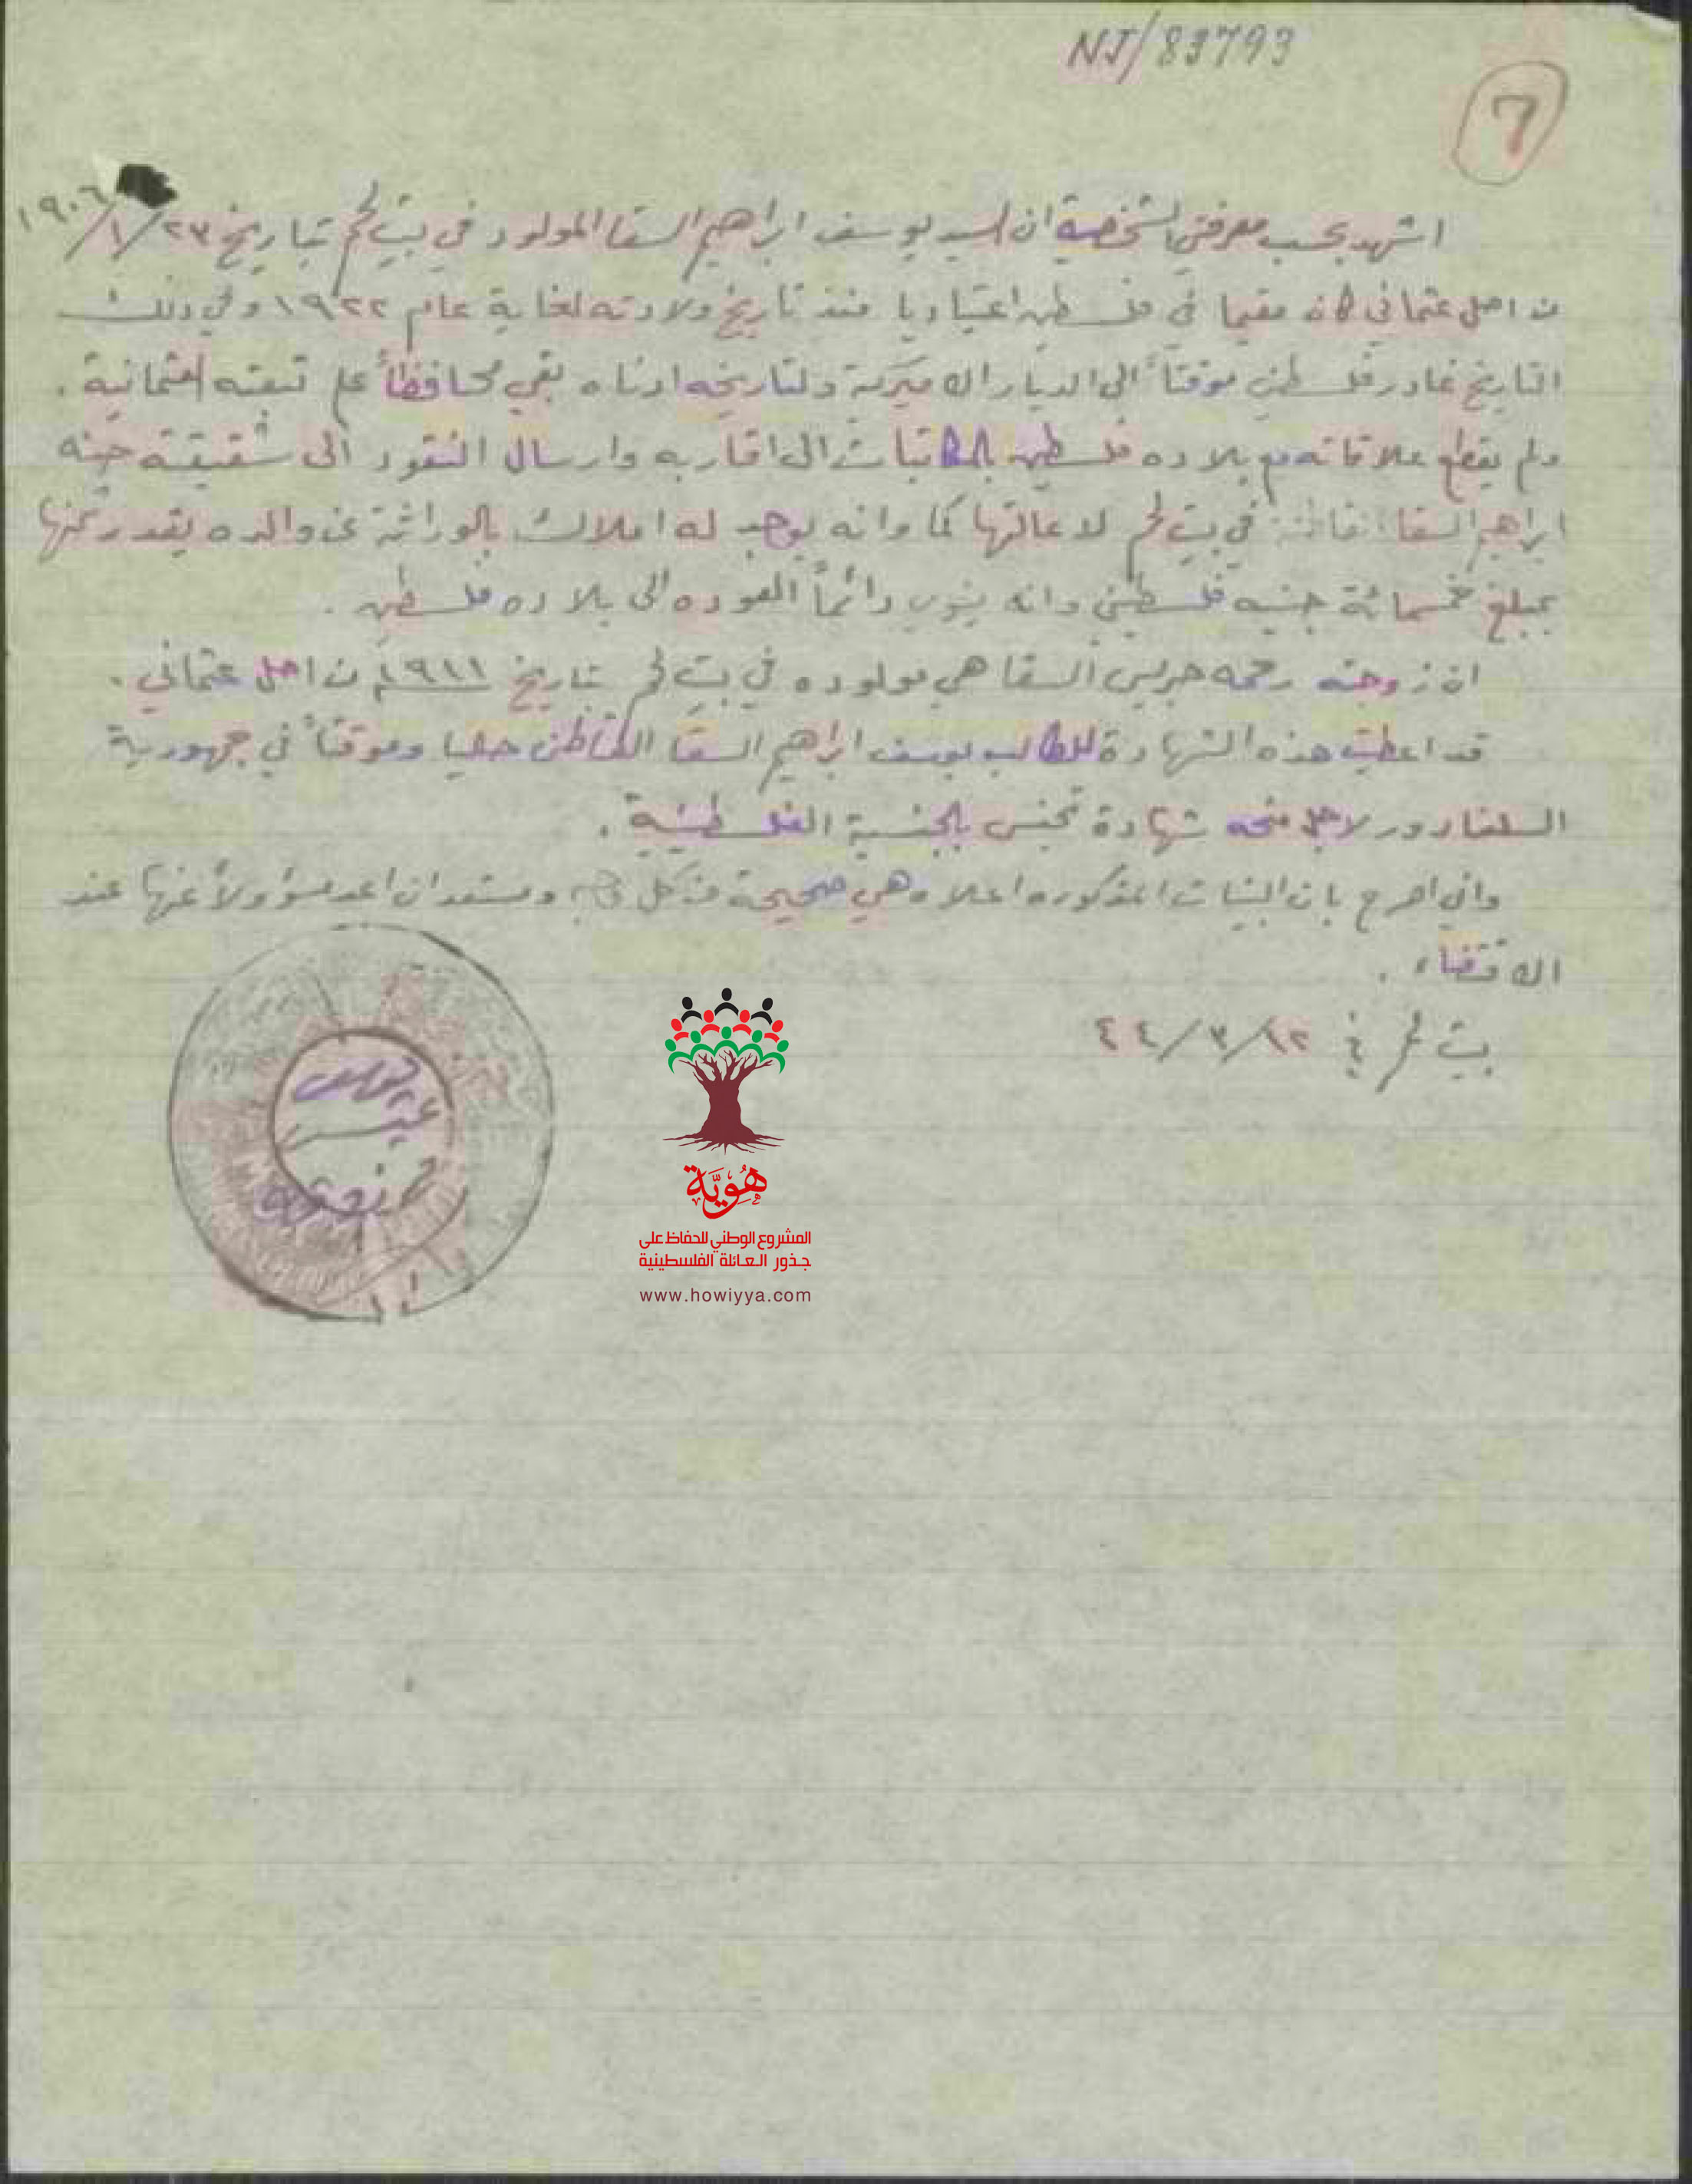 NJ/83793
7
اشهد بحسب معرفتي الشخصية ان السيد يوسف ابراهيم السقا المولود في بيت لحم بتاريخ ٢٣/١/١٩٠٦
من اصل عثماني كان مقيما في فلسطين اعتياديا منذ تاريخ ولادته لغاية عام ١٩٢٢ وفي ذلك
التاريخ غادر فلسطين موقتاً الى الديار الاميركية ولتاريخه ادناه بقي محافظاً على تبعته العثمانية .
ولم يقطع علاقاته مع بلاده فلسطين بالمكاتبات الى اقاربه وارسال النقود الى شقيقته حنه
ابراهيم السقا القاطنة في بيت لحم لاعالتها كما وانه يوجد له املاك بالوراثة عن والده يقدر ثمنها
بمبلغ خمسمائة جنيه فلسطيني وانه ينوي دائماً العوده الى بلاده فلسطين .
ان زوجته رحمه جريس السقا هي مولوده في بيت لحم بتاريخ ١٩١١ من اصل عثماني .
قد اعطيت هذه الشهادة للطالب يوسف ابراهيم السقا القاطن حاليا وموقتاً في جمهورية
السلفادور لاجل منحه شهادة تجنس بالجنسية الفلسطينية .
واني اصرح بان البينات المذكوره اعلاه هي صحيحة من كل وجه ومستعد ان اعد مسؤولاً عنها عند
الاقتضاء .
بيت لحم في ١٢/٣/٤٤
هُوِيَّة
المشروع الوطني للحفاظ على
جذور العائلة الفلسطينية
www.howiyya.com